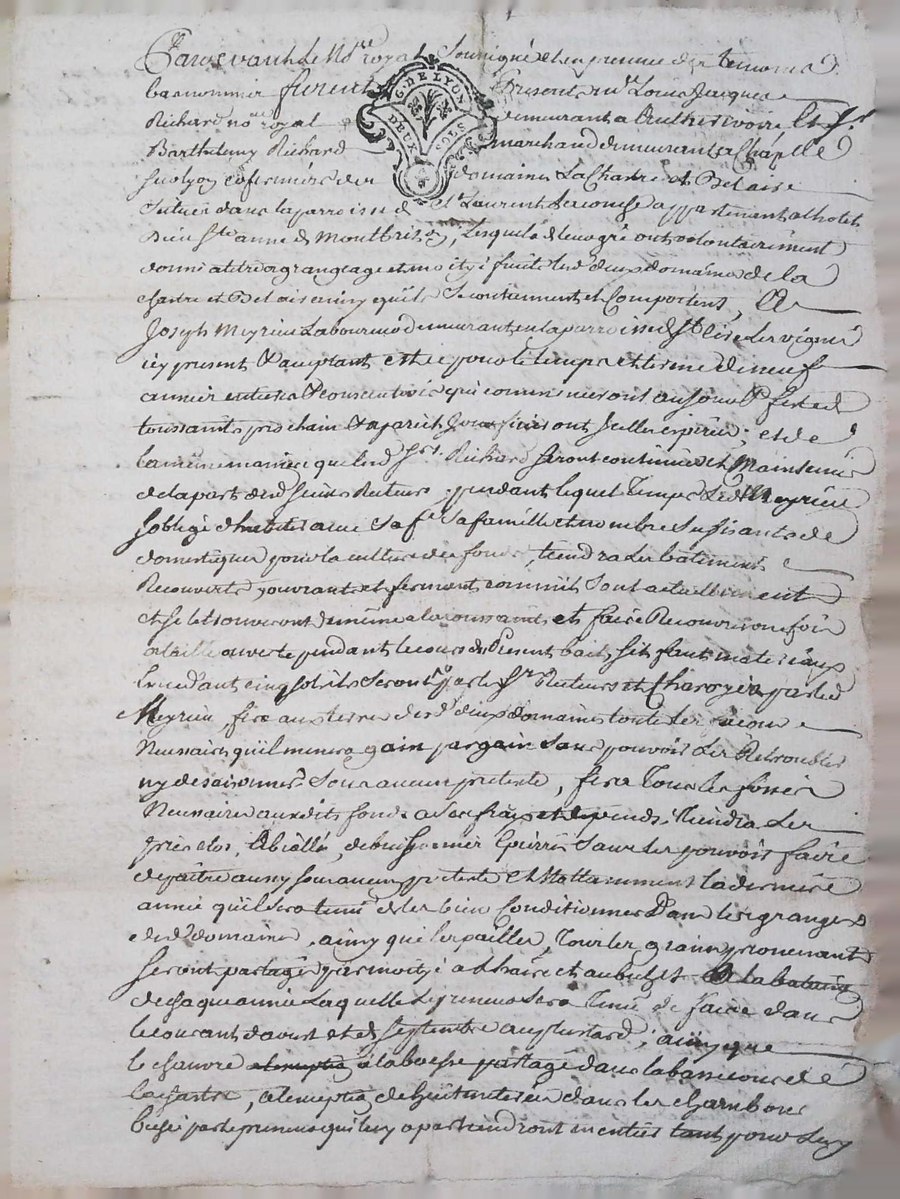 Pardevant le No.re royal Soussigné et en presence des temoins
bas nommés furent presents m.re Louis Jacques
Richard no.re royal demeurant a
Barthelemy Richard marchand demeurant a Chapelle
G. DE LYON
DEUX SOLS
sur lyon cofermiers des domaines La Chartre et Belaise
Situés dans la parroisse de St Laurent appartenant a lhotel
Dieu Ste anne de Montbrison, lesquels de leur gré ont volontairement
donné a titre de grangeage et moityé fruits lesd. deux domaines de la
chartre et Belaise ainsy quils se contiennent et Comportent, a
Joseph Meyrieu Laboureur demeurant en la parroisse de St les vignes
icy present & acceptant et ce pour le temps et terme de neuf
années entieres & consecutives qui commenceront au jour & feste de
toussaints prochain & a pareil Jour finiront Jcelles expirées, et de
la meme maniere que lesd. Srs. Richard seront continués et Maintenus
de la part desd. sieurs Recteurs, pendant lequel Temps Led. Meyrieu
soblige dhabiter avec Sa fe. Sa famille et nombre Suffisants de
domestiques pour la culture des fonds, tiendra Les bâtiments
Recouverts, ouvrants et fermants comme ils Sont actuellement
et se les trouveront de même a la toussaints et faire Recouvrir une fois
a taille ouverte pendant le cours du Present bail, sil faut materiaux
Excedant cinq sols ils Seront par les Srs. Recteurs et Charoyés par led.
Meyrieu, fera aux terres desd. deux domaines toutes les
Necessaires quil menera gain par gain Sans pouvoir Les Retroubler
ny desaisonner Sous aucun pretexte, fera Tous les fossés
Necessaire auxdits fonds a Ses frais et depends, Tiendra Les
prés clos, debuissonnés Epierrés Sans Les pouvoir faire
depaitre aussy sous aucun pretexte Et Nottamment La derniere
année quil sera tenu de les bien Conditionner Dans les granges
desd. domaines, ainsy que les pailles, Tous les grains provenants
seront partagés par moityé a Lhaire et au bichet
de chaque année Laquelle Le preneur sera Tenu de faire dans
le courant daoust et de Septembre au plus tard, ainsy que
le chanvre a la partagé dans la basse cour de
la chartre, a lexception de huit metieres dans les chambons
par le preneur qui luy apartiendront en entier tant pour Luy